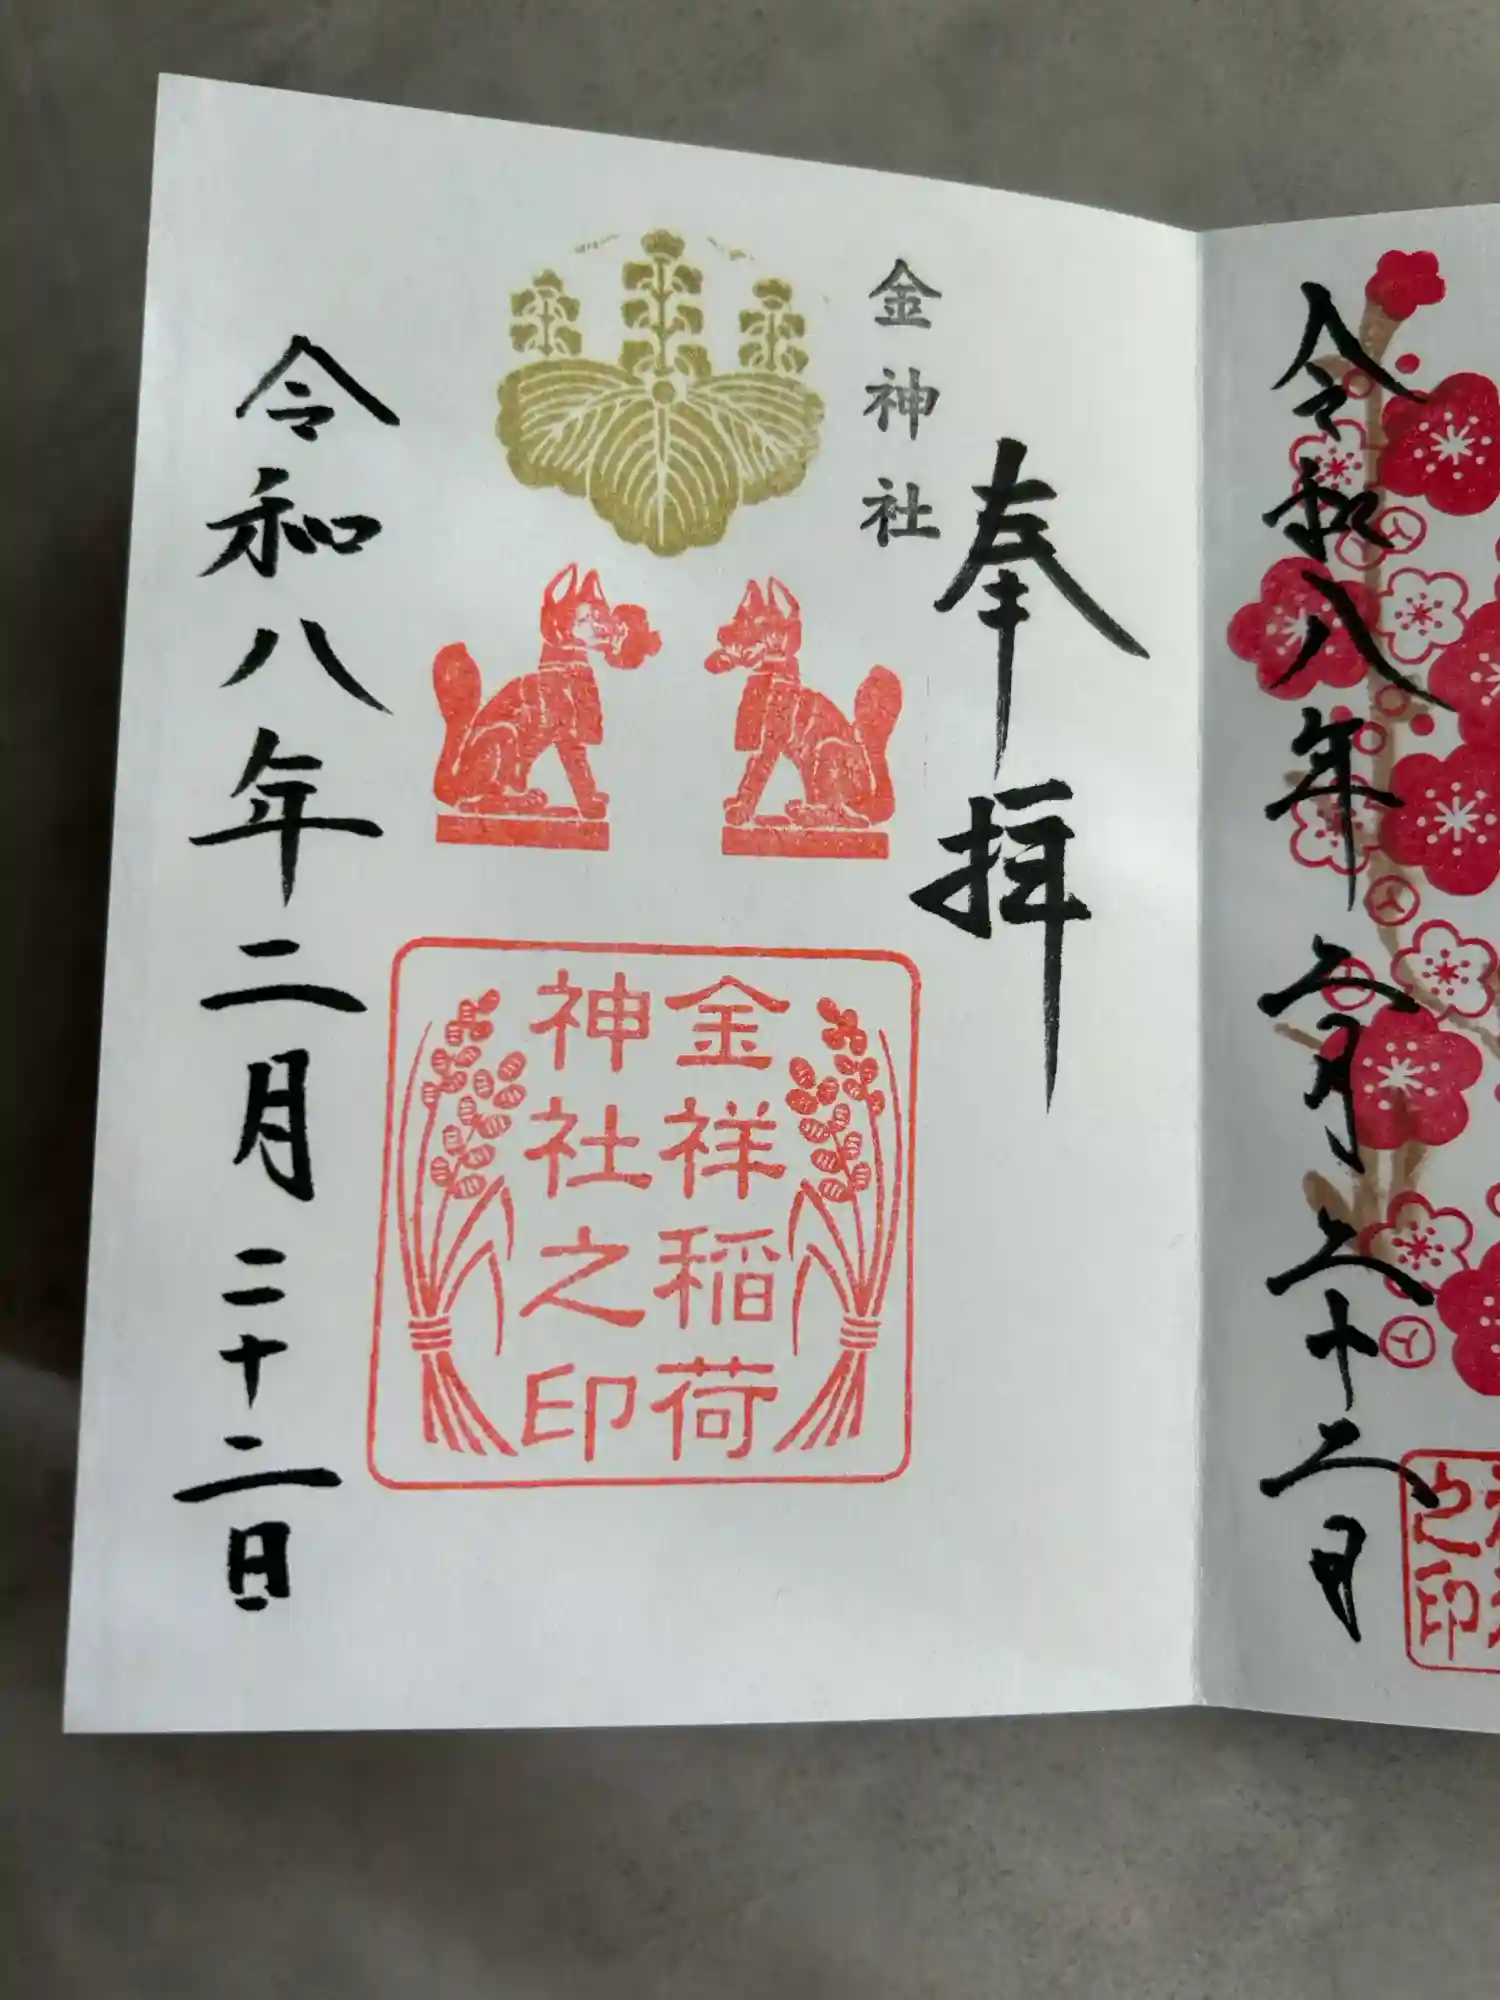 令和八年二月二十二日
奉拝
金神社
金祥稲荷
神社之印
令和八年二月二十二日
之印